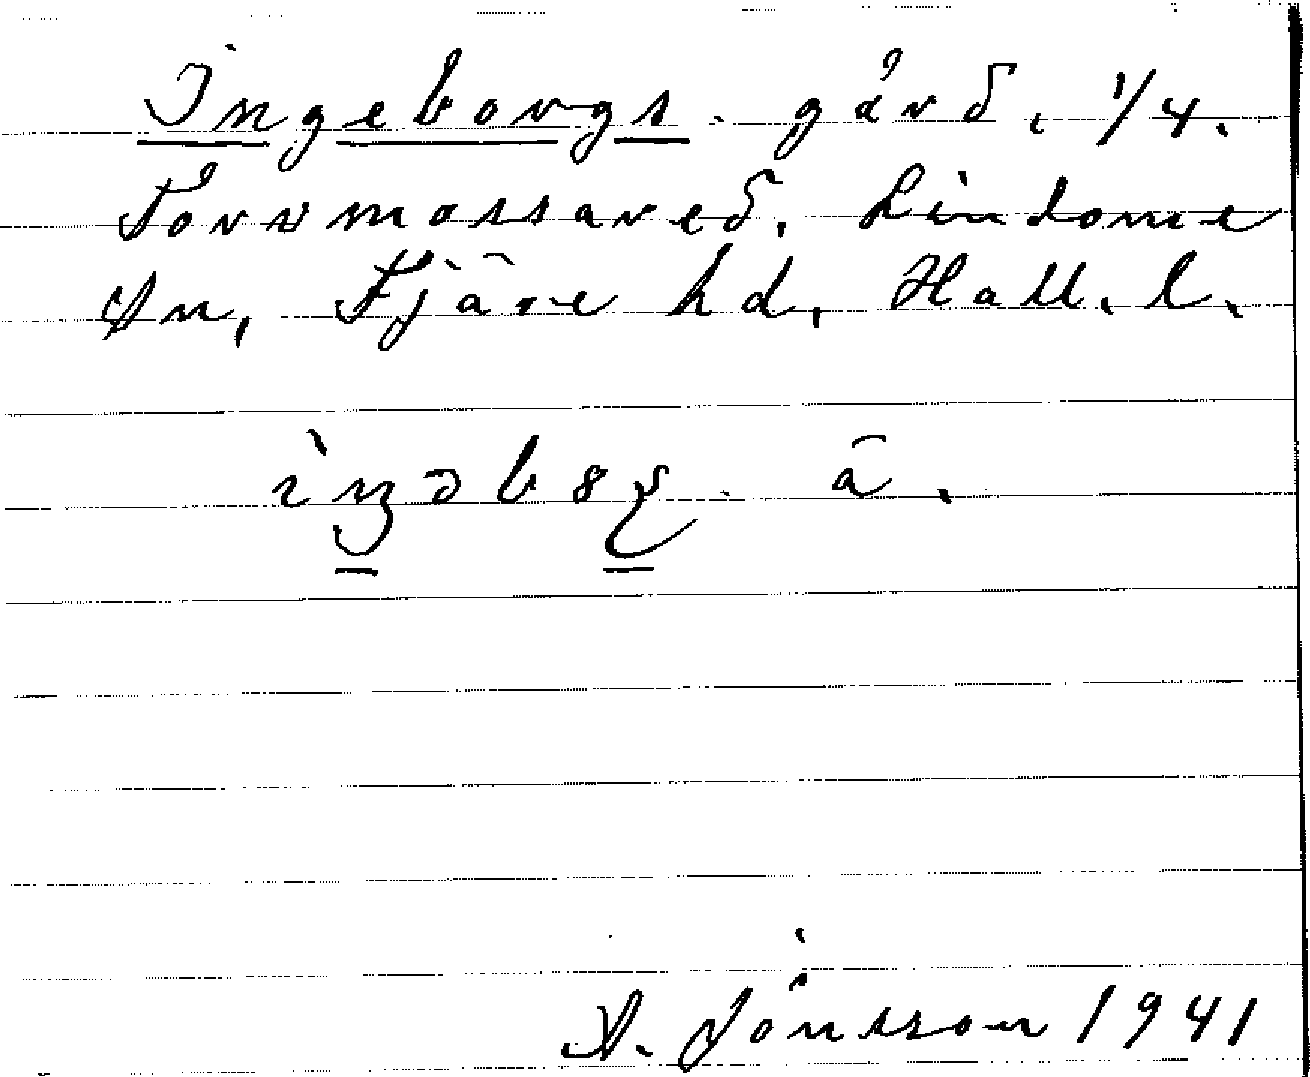 Ingeborgs gård. 1/4.
Torvmossared. Lindome
sn, Fjäre hd, Hall. l.
A. Jönsson 1941